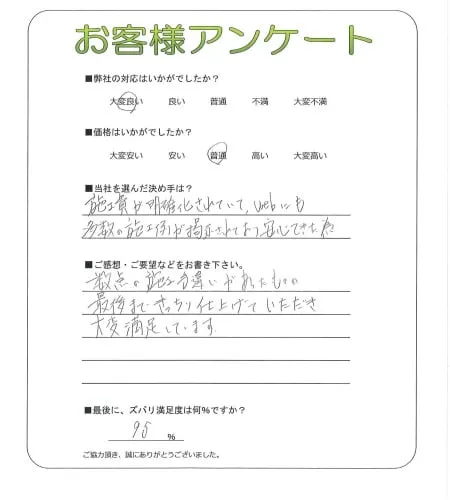 お客様アンケート
■弊社の対応はいかがでしたか？
大変良い 良い 普通 不満 大変不満
■価格はいかがでしたか？
大変安い 安い 普通 高い 大変高い
■当社を選んだ決め手は？
施工費が明確化されていて、Webにも
多数の施工例が掲示されており安心できた為
■ご感想・ご要望などをお書き下さい。
数点の施工違いがあったものの
最後まできっちり仕上げていただき
大変満足しています
■最後に、ズバリ満足度は何％ですか？
95 %
ご協力頂き、誠にありがとうございました。